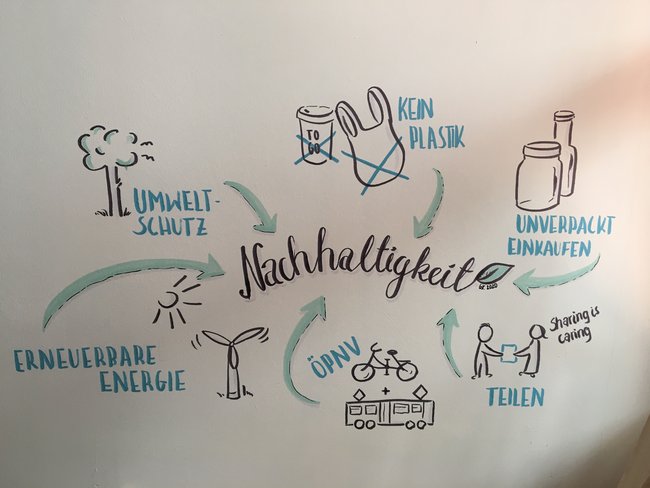 TO
GO
KEIN
PLASTIK
UMWELT-
SCHUTZ
UNVERPACKT
EINKAUFEN
Nachhaltigkeit
ERNEUERBARE
ENERGIE
ÖPNV
+
Sharing is
caring
TEILEN